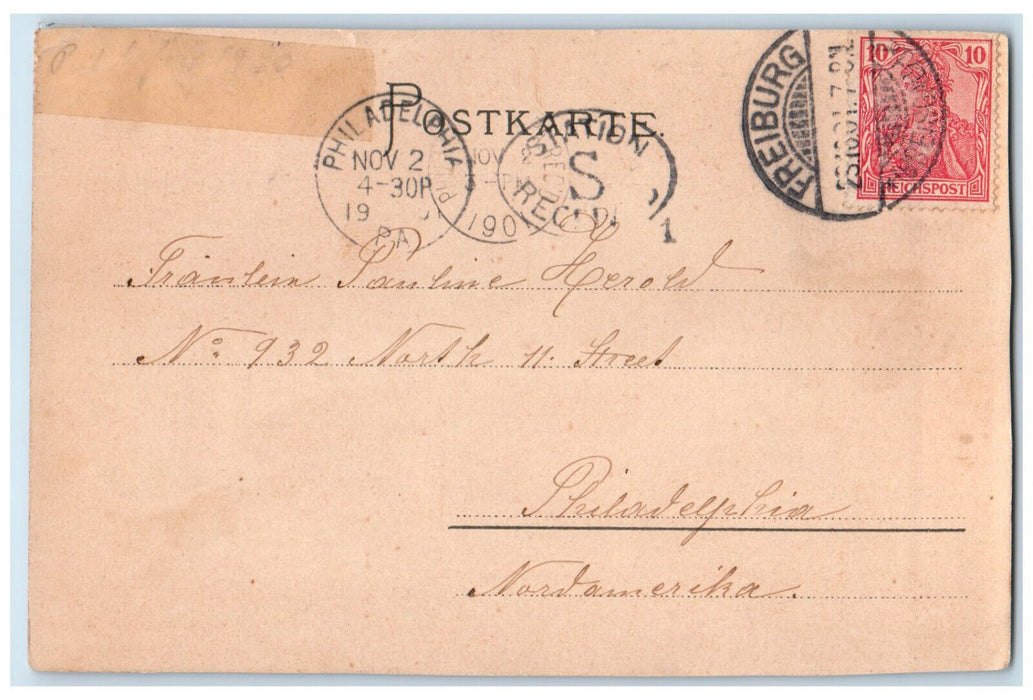 POSTKARTE.
PHILADELPHIA
NOV 2
4-30P
19
PA
NOV 2
1901
STATION
S
REC'D.
1
FREIBURG
23.10.01.7-8N.
10 10
REICHSPOST
Fräulein Pauline Herold
No. 932 North 11. Street
Philadelphia
Nordamerika.